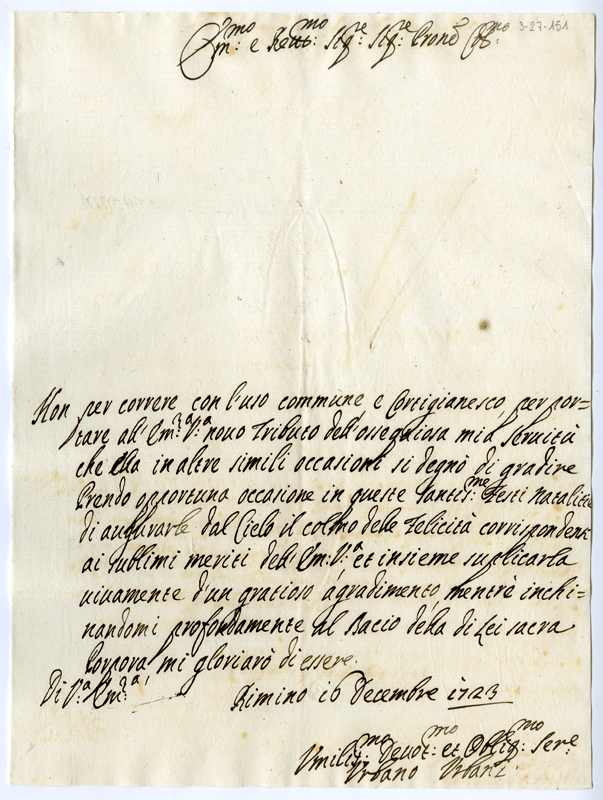 Em:mo e Reu:mo Sig:re Sig:re Prone Col:mo 3-27-151
Non per correre con l'uso commune e Cortigianesco, per por=
tare all'Em:a V:a nouo Tributo dell'ossequiosa mia seruitù
che Ella in altre simili occasioni si degnò di gradire
Prendo opportuna occasione in queste santis:me Feste Natalitie
di augurarle dal Cielo il colmo delle Felicità corrispondenti
ai sublimi meriti dell'Em:V:a et insieme suplicarla
uiuamente d'un gratioso agradimento mentrè inchi=
nandomi profondamente al Bacio della di Lei sacra
Porpora mi gloriarò di essere.
Di V:a Em:a
Rimino 16 Decembre 1723
Vmilis:mo Deuot:mo et Oblig:mo Ser:e
Vrbano Vrbani